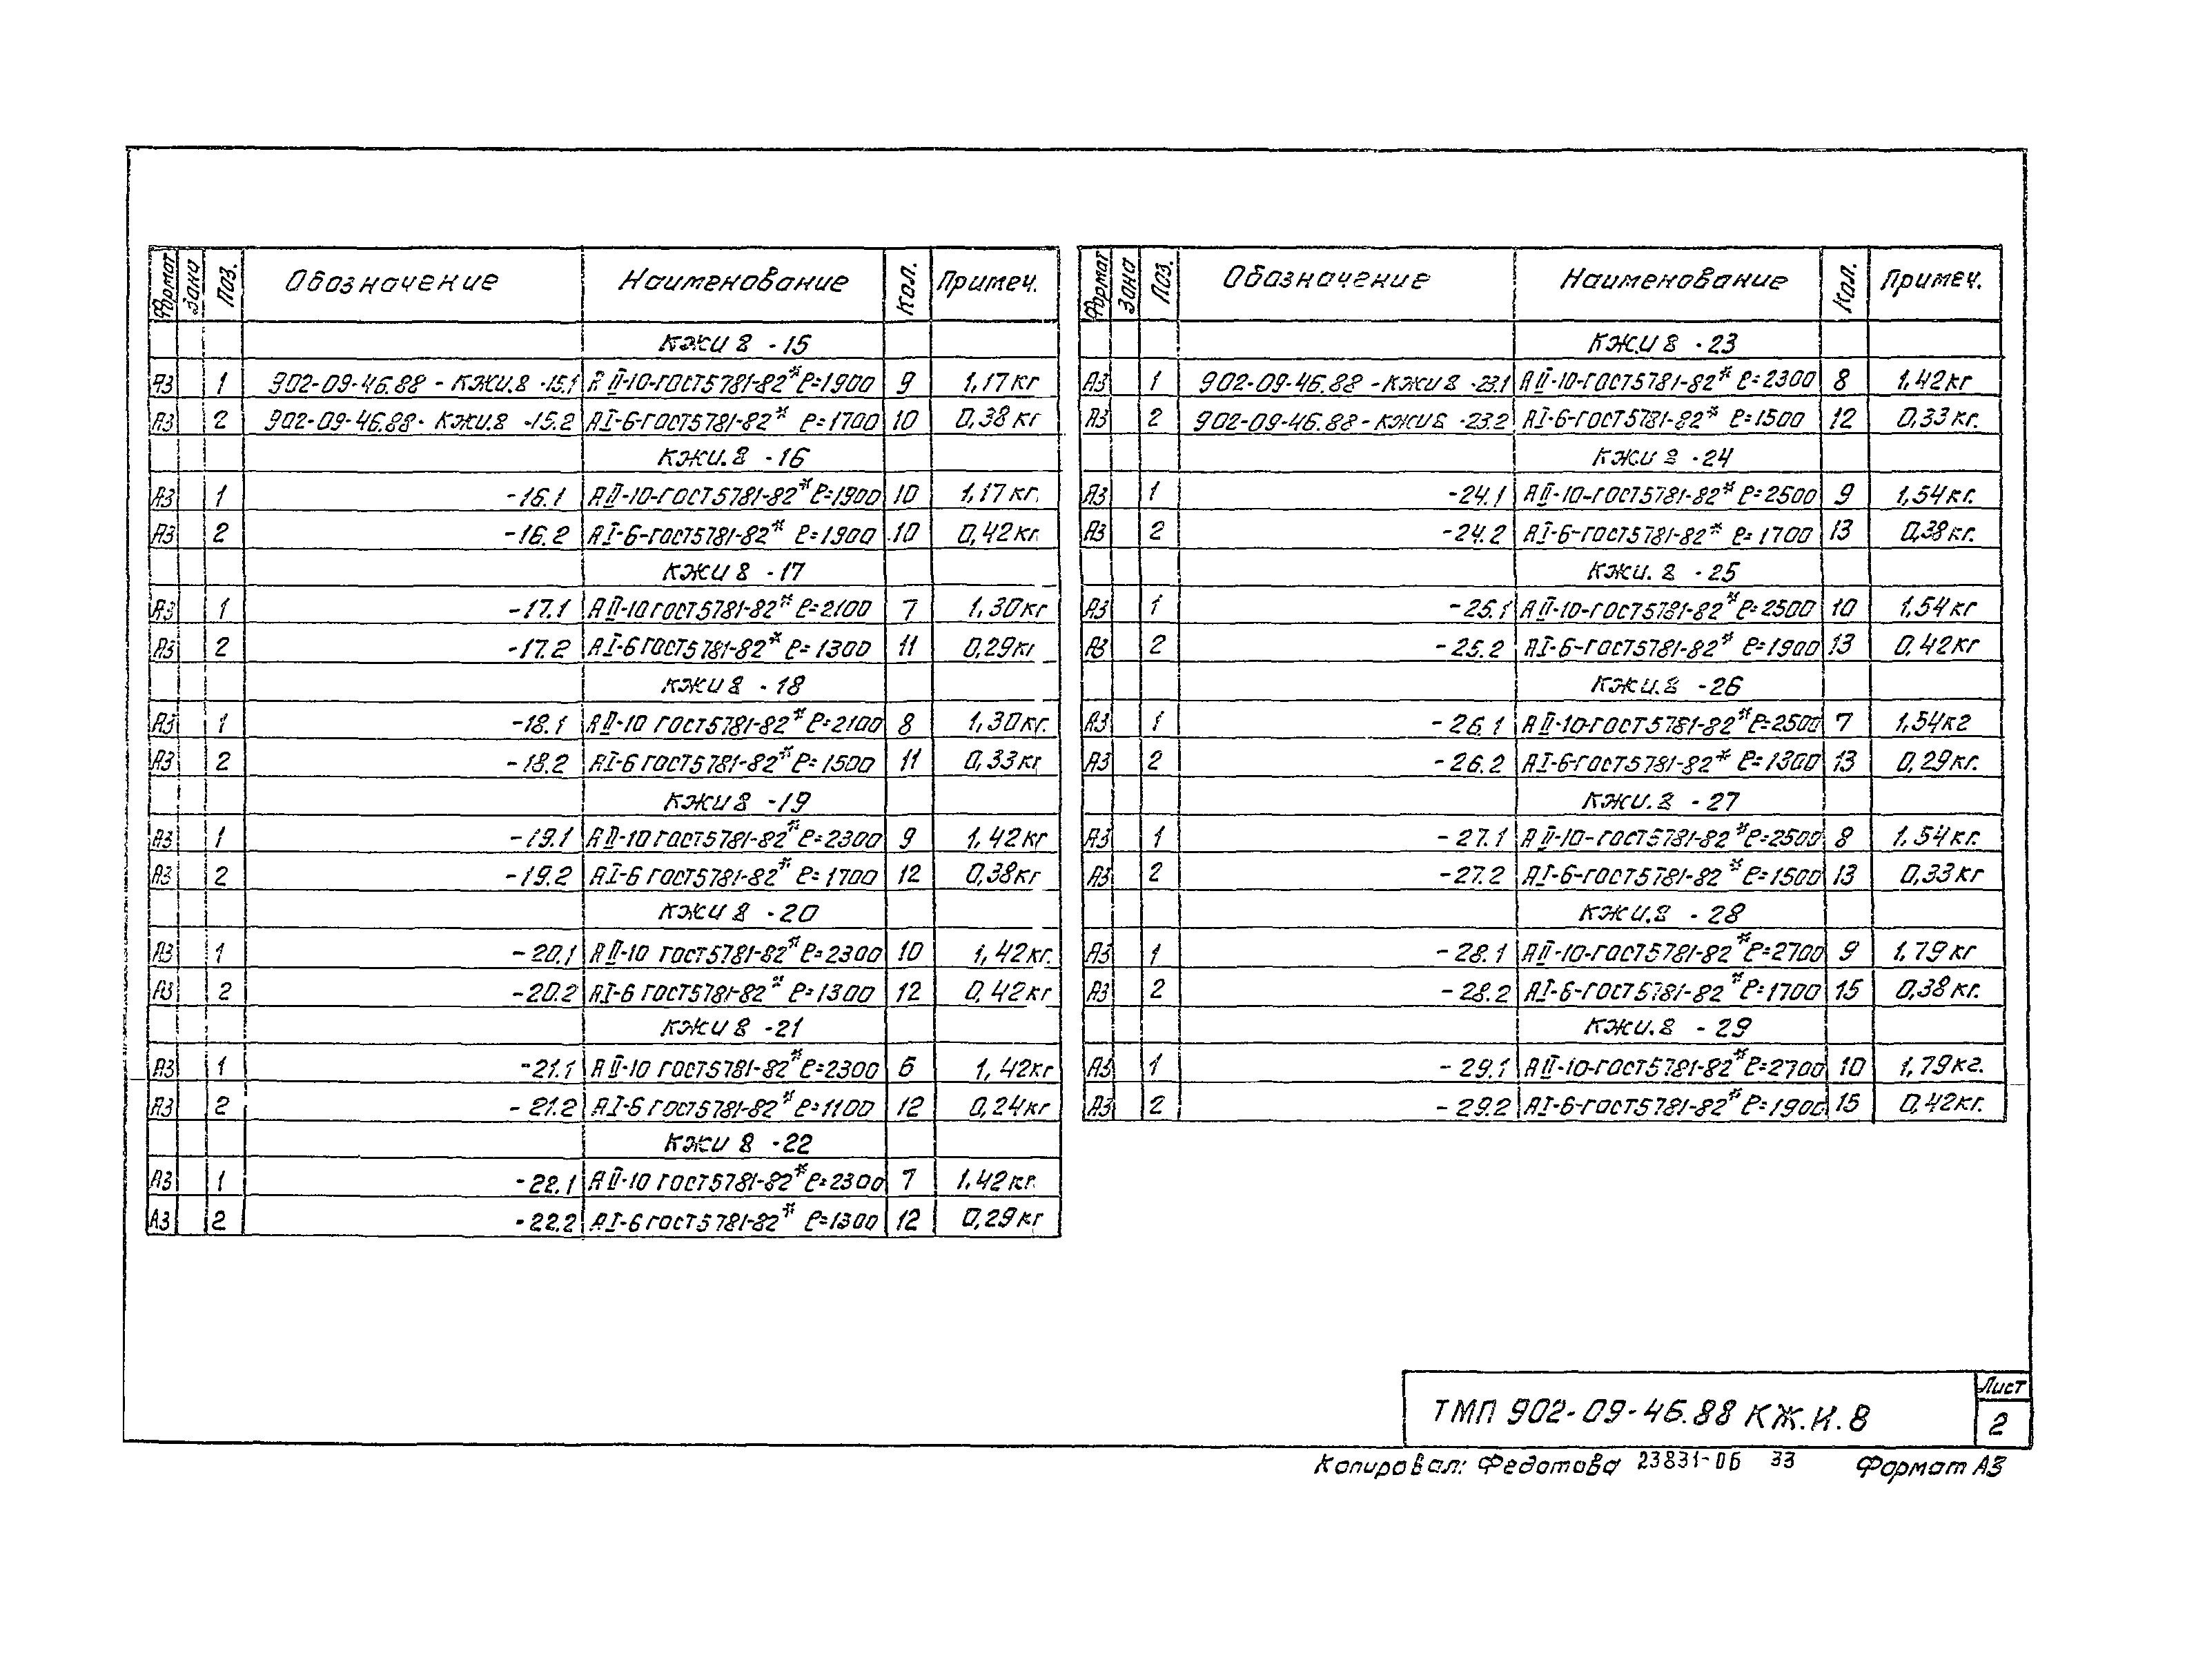 Формат Зона Поз. Обозначение Наименование Кол. Примеч.
КЖИ 8 -15
А3 1 902-09-46.88 - КЖИ.8 -15.1 АII-10-ГОСТ5781-82* ℓ=1900 9 1,17кг
А3 2 902-09-46.88 - КЖИ.8 -15.2 АI-6-ГОСТ5781-82* ℓ=1700 10 0,38 кг
КЖИ.8 -16
А3 1 -16.1 АII-10-ГОСТ5781-82* ℓ=1900 10 1,17 кг.
А3 2 -16.2 АI-6-ГОСТ5781-82* ℓ=1900 10 0,42кг
КЖИ 8 -17
А3 1 -17.1 АII-10 ГОСТ5781-82* ℓ=2100 7 1,30кг
А3 2 -17.2 АI-6 ГОСТ5781-82* ℓ=1300 11 0,29кг
КЖИ 8 -18
А3 1 -18.1 АII-10 ГОСТ5781-82* ℓ=2100 8 1,30кг.
А3 2 -18.2 АI-6 ГОСТ5781-82* ℓ=1500 11 0,33кг
КЖИ 8 -19
А3 1 -19.1 АII-10 ГОСТ5781-82* ℓ=2300 9 1,42кг
А3 2 -19.2 АI-6 ГОСТ5781-82* ℓ=1700 12 0,38кг
КЖИ 8 -20
А3 1 -20.1 АII-10 ГОСТ5781-82* ℓ=2300 10 1,42кг.
А3 2 -20.2 АI-6 ГОСТ5781-82* ℓ=1300 12 0,42кг
КЖИ 8 -21
А3 1 -21.1 АII-10 ГОСТ5781-82* ℓ=2300 6 1,42кг
А3 2 -21.2 АI-6 ГОСТ5781-82* ℓ=1100 12 0,24кг
КЖИ 8 -22
А3 1 -22.1 АII-10 ГОСТ5781-82* ℓ=2300 7 1.42кг.
А3 2 -22.2 АI-6 ГОСТ5781-82* ℓ=1300 12 0,29кг
Формат Зона Поз. Обозначение Наименование Кол. Примеч.
КЖИ 8 -23
А3 1 902-09-46.88 -КЖИ 8 -23.1 АII-10-ГОСТ5781-82* ℓ=2300 8 1,42кг
А3 2 902-09-46.88 -КЖИ 8 -23.2 АI-6-ГОСТ5781-82* ℓ=1500 12 0,33кг.
КЖИ 8 -24
А3 1 -24.1 АII-10-ГОСТ5781-82* ℓ=2500 9 1,54кг.
А3 2 -24.2 АI-6-ГОСТ5781-82* ℓ=1700 13 0,38кг.
КЖИ. 8 -25
А3 1 -25.1 АII-10-ГОСТ5781-82* ℓ=2500 10 1,54кг
А3 2 -25.2 АI-6-ГОСТ5781-82* ℓ=1900 13 0,42кг
КЖИ.8 -26
А3 1 -26.1 АII-10-ГОСТ5781-82* ℓ=2500 7 1,54кг
А3 2 -26.2 АI-6-ГОСТ5781-82* ℓ=1300 13 0,29кг.
КЖИ.8 -27
А3 1 -27.1 АII-10-ГОСТ5781-82* ℓ=2500 8 1.54кг.
А3 2 -27.2 АI-6-ГОСТ5781-82* ℓ=1500 13 0,33кг
КЖИ.8 -28
А3 1 -28.1 АII-10-ГОСТ5781-82* ℓ=2700 9 1,79кг
А3 2 -28.2 АI-6-ГОСТ5781-82* ℓ=1700 15 0,38кг.
КЖИ.8 -29
А3 1 -29.1 АII-10-ГОСТ5781-82* ℓ=2700 10 1,79кг.
А3 2 -29.2 АI-6-ГОСТ5781-82* ℓ=1900 15 0,42кг.
ТМП 902-09-46.88 КЖ.И.8
Лист
2
Копировал: Федотова 23831-06 33 Формат А3